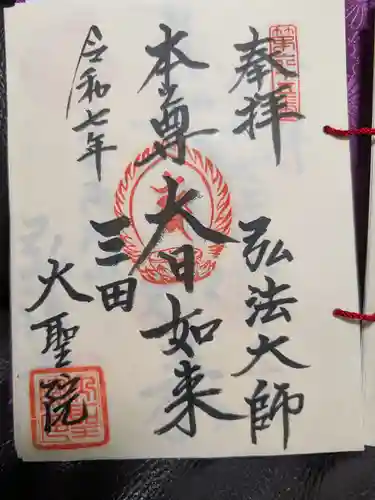 奉拝
弘法大師
本尊大日如来
三田
大聖院
令和七年